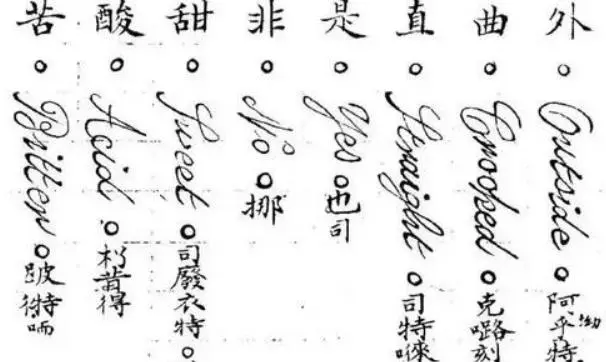 外 Outside 阿乎特
曲 Crooked 克嚕刻
直 Straight 司特
是 Yes 也司
非 No 挪
甜 Sweet 司廢衣特
酸 Acid 得
苦 Bitter 特